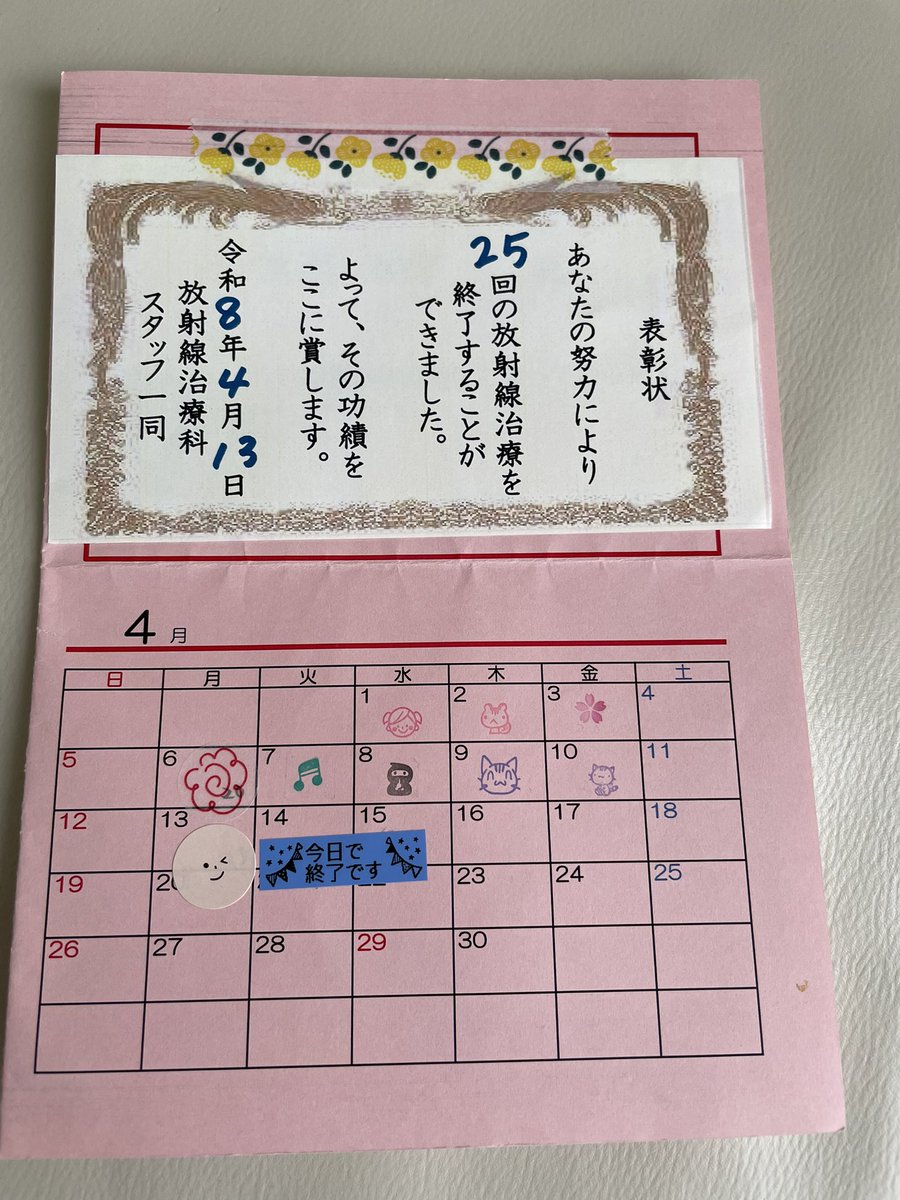 表彰状
あなたの努力により
25回の放射線治療を
終了することが
できました。
よって、その功績を
ここに賞します。
令和8年4月13日
放射線治療科
スタッフ一同
4月
日 月 火 水 木 金 土
1 2 3 4
5 6 7 8 9 10 11
12 13 14 15 16 17 18
今日で
終了です
19 23 24 25
26 27 28 29 30